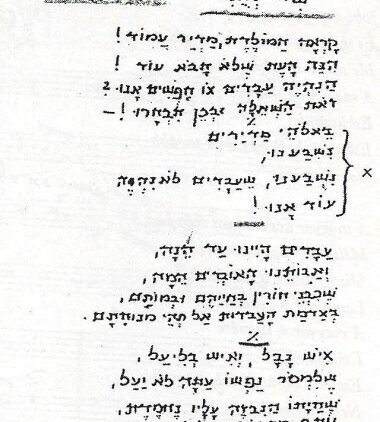 קָרְאָה הַמּוֹלֶדֶת, מַדְיָר עֲמוֹד !
הִנֵּה הָעֵת שֶׁלֹּא תָבֹא עוֹד !
הֲנִהְיֶה עֲבָדִים אוֹ חָפְשִׁים אָנוּ ?
זֹאת הַשְּׁאֵלָה וּבְכֵן תִּבְחָרוּ ! –
בֵּאלֹהֵי מַדְיָרִים
נִשְׁבַּעְנוּ,
נִשְׁבַּעְנוּ, שֶׁעֲבָדִים לֹא נִהְיֶה
x
עוֹד אָנוּ !
עֲבָדִים הָיִינוּ עַד הֵנָּה,
וַאֲבוֹתֵינוּ הָאוֹבְדִים הֵמָּה,
שֶׁכִּבְנֵי חוֹרִין בְּחַיֵּיהֶם וּבְמוֹתָם,
בְּאַדְמַת הָעַבְדוּת אַל תְּהִי מְנוּחָתָם .
אִישׁ נָבָל, וְאִישׁ בְּלִיַּעַל,
שֶׁלִּמְסֹר נַפְשׁוֹ עַתָּה לֹא יַעַל,
שֶׁחַיָּתוֹ הַנִּבְזָה עָלָיו נֶחְמֶדֶת,